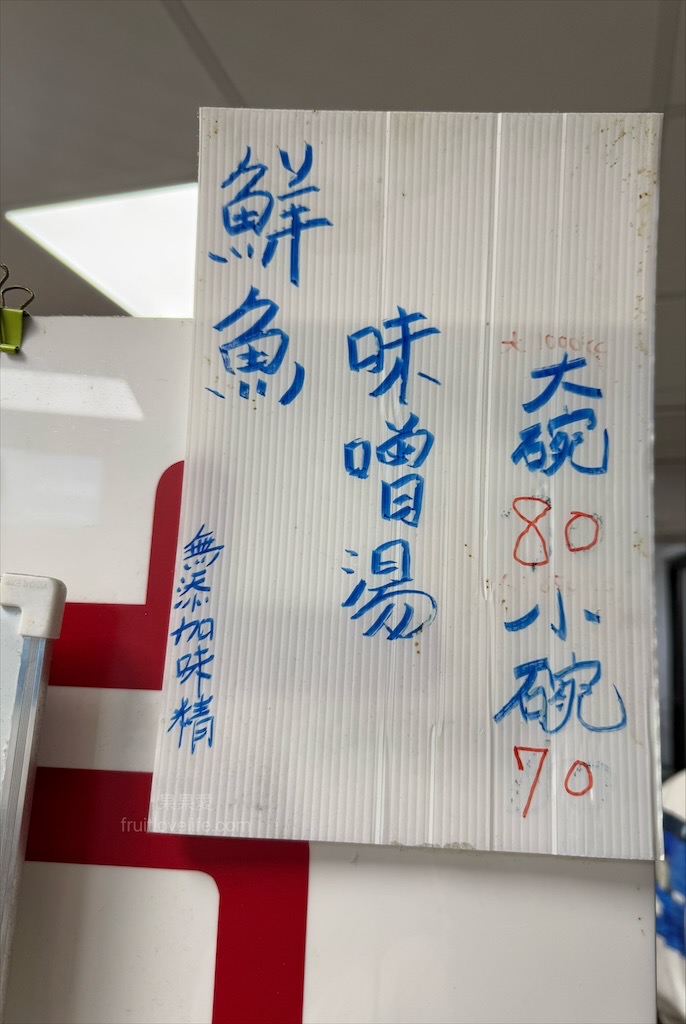 鮮魚
味噌湯
無添加味精
大碗
80
小碗
70
果果愛
fruitlovelife.com